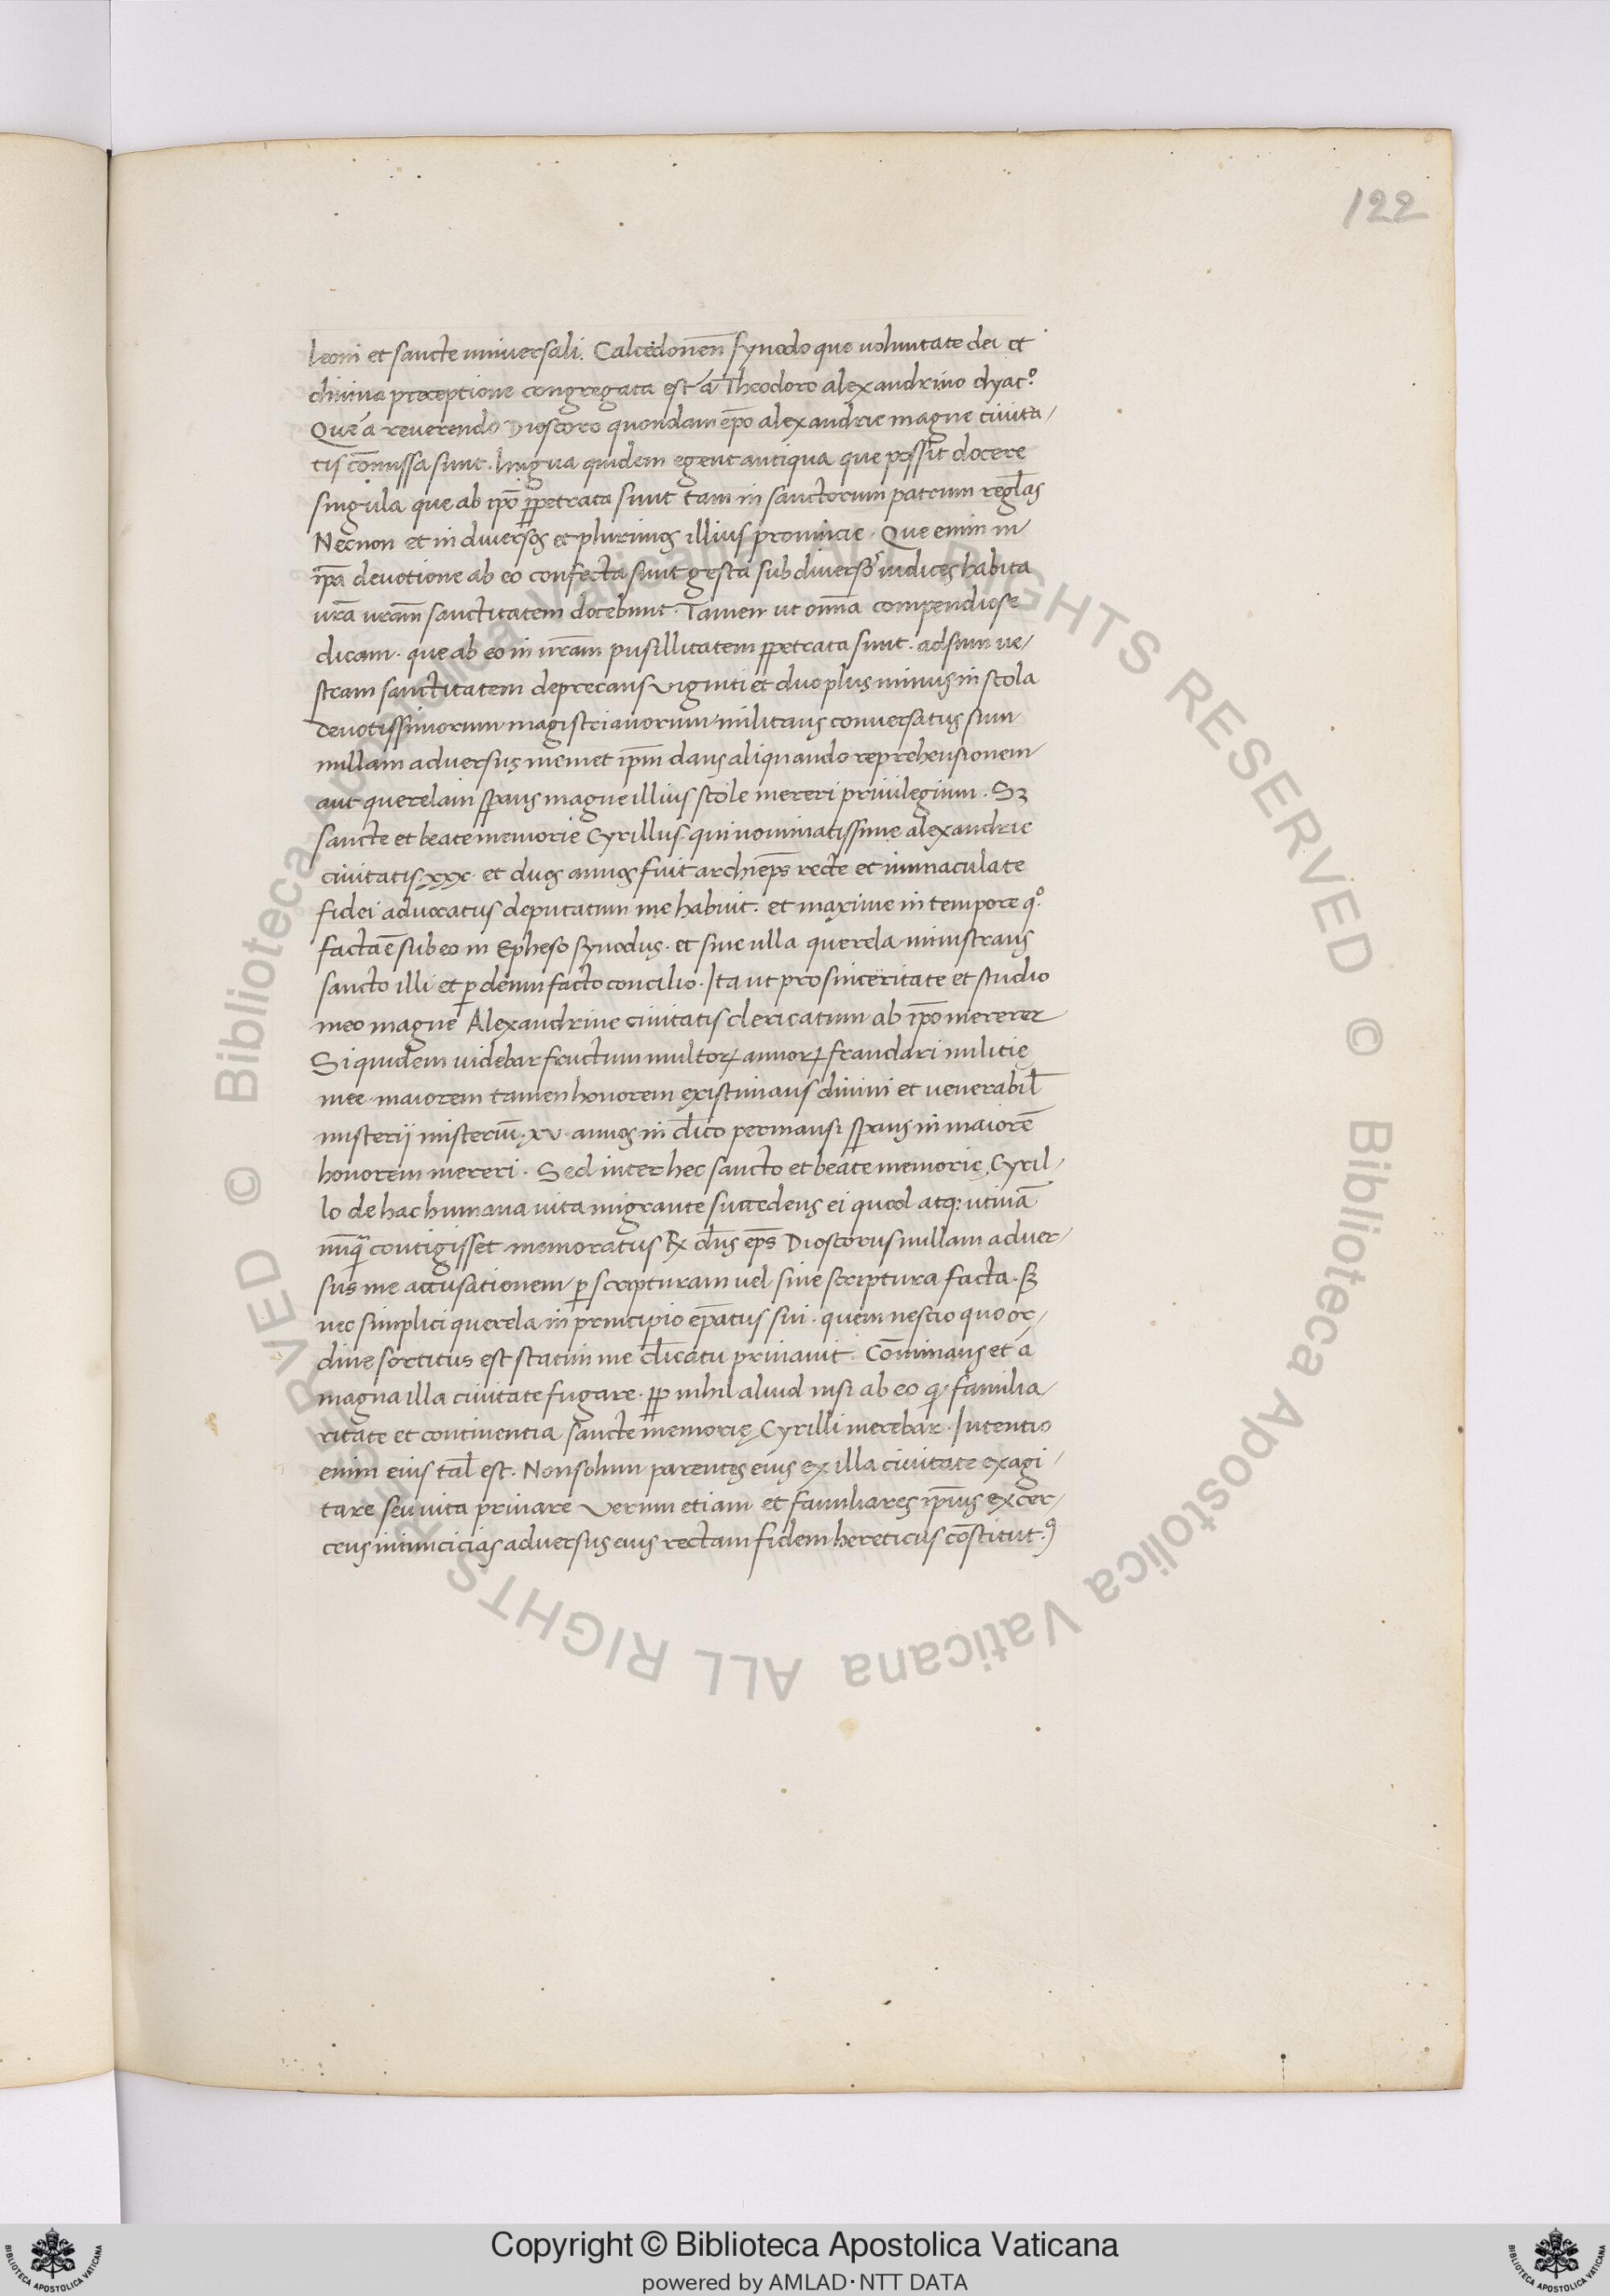 122
leoni et sancte universali. Calcedonen̄ synodo que voluntate dei et
divina preceptione congregata est á Theodoro alexandrino dyac.º
Que á reverendo Dioscoro quondam ep̄o alexandrie magne civita-
tis com̄issa sunt. lingua quidem egent antiqua que possit docere
singula que ab ip̄o ꝑpetrata sunt tam in sanctorum patrum regl̄as
Necnon et in diversos et plurimos illius provincie. Que enim in
ip̄a devotione ab eo confecta sunt gesta sub diversos iudices habita
vr̄a vr̄am sanctitatem docebunt. Tamen ut om̄a compendiose
dicam. que ab eo in vr̄am pusillitatem ꝑpetrata sunt. adsum ve-
stram sanctitatem deprecans viginti et duo plus minus in scola
devotissimorum magistrianorum militans conversatus sum
nullam adversus memet ip̄m dans aliquando reprehensionem
aut querelam sꝑans magne illius scole mereri privilegium. Sꝫ
sancte et beate memorie Cyrillus. qui nominatissime alexandrie
civitatis. xxx. et duos annos fuit archiep̄s recte et immaculate
fidei advocatus deputatum me habuit. et maxime in tempore q.º
facta ē sub eo in Epheso synodus. et sine ulla querela ministrans
sancto illi et ꝑ deum facto concilio. Ita ut pro sinceritate et studio
meo magne Alexandrine civitatis clericatum ab ip̄o mererer
Siquidem videbar fructum multoꝝ annoꝝ fraudari militie
mee. maiorem tamen honorem existimans divini et venerabil̄
misterii misteriū. xv. annos in cl̄ico permansi sꝑans in maiorē
honorem mereri. Sed inter hec sancto et beate memorie Cyril-
lo de hac humana vita migrante succedens ei quod atq: utinā
nūqͣ contigisset memoratus Rx dn̄s ep̄s Dioscorus nullam adver-
sus me accusationem ꝑ scripturam vel sine scriptura facta. Sꝫ
nec simplici querela in principio ep̄atus sui. quem nescio quo or-
dine sortitus est statim me cl̄icatu privavit. Com̄inans et á
magna illa civitate fugare. ꝓp nihil aliud nisi ab eo q. familia-
ritate et continentia sancte memorię Cyrilli merebar. Intentio
enim eius tal̄ est. Non solum parentes eius ex illa civitate exagi-
tare seu vita privare verum etiam et familiares ip̄ius exer-
cens inimicicias adversus eius rectam fidem hereticus cōstitut.ꝰ
Copyright © Biblioteca Apostolica Vaticana
powered by AMLAD·NTT DATA